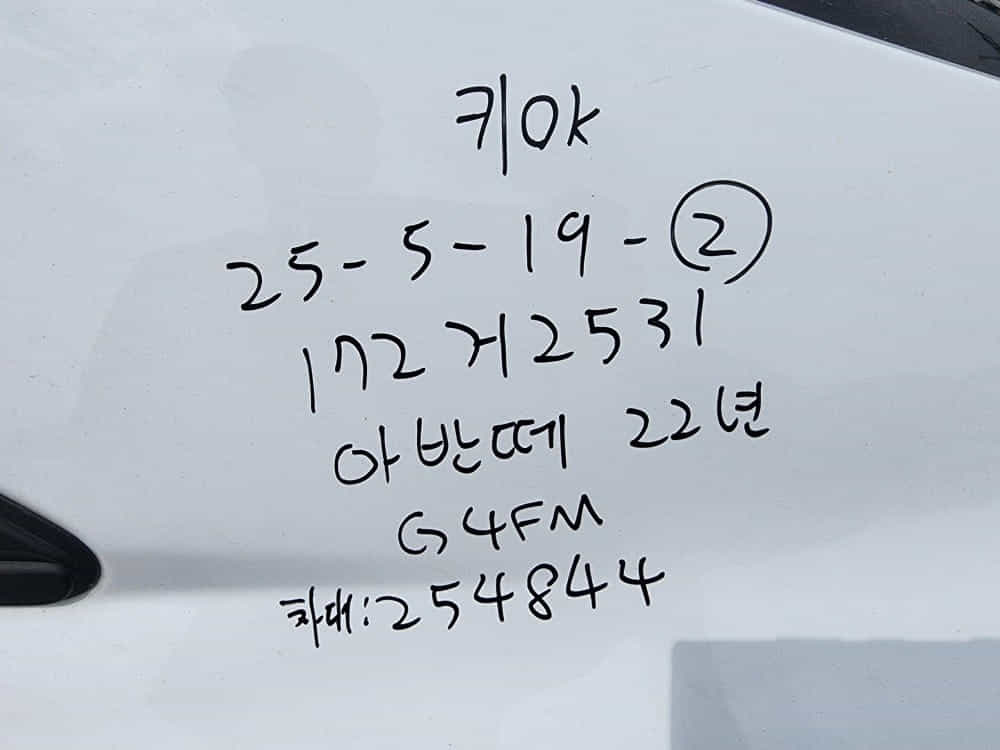 키OK
25-5-19-②
172거2531
아반떼 22년
G4FM
차대:254844